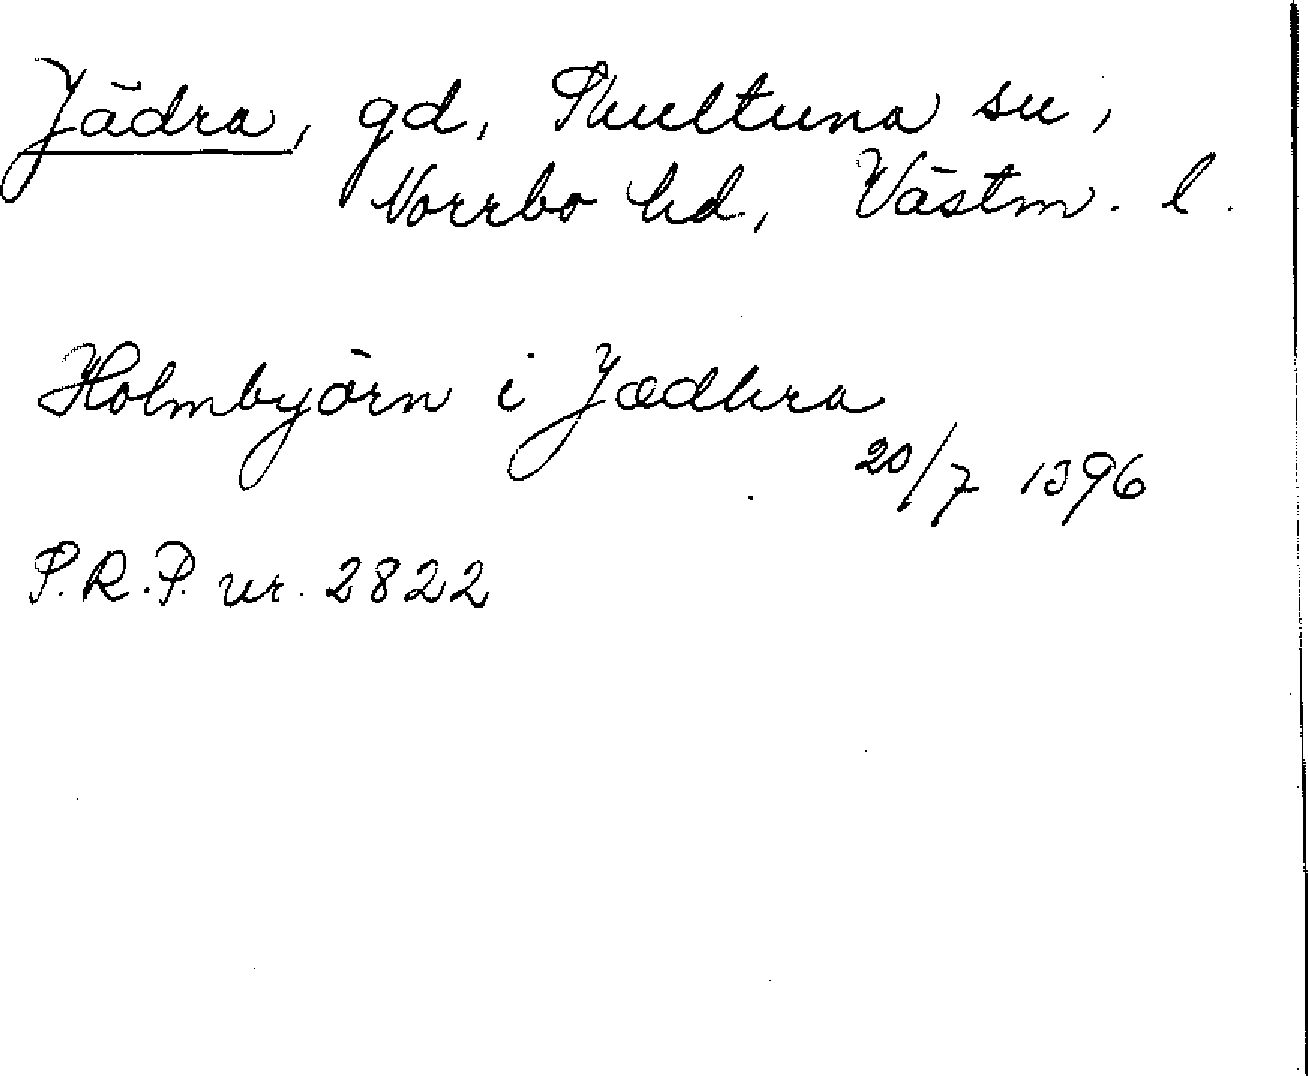 Jädra, gd, Skultuna sn,
Norrbo hd, Västm. l.
Holmbyörn i Jædhra
20/7 1396
S.R.P. nr. 2822